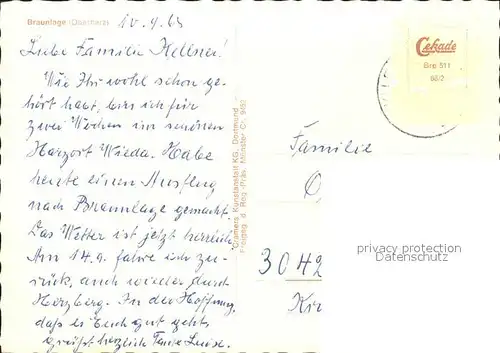 Braunlage (Oberharz)
10.9.65
Liebe Familie Kellner!
Wie Ihr wohl schon ge-
hört habt, bin ich für
zwei Wochen im schönen
Harzort Wieda. Habe
heute einen Ausflug
nach Braunlage gemacht.
Das Wetter ist jetzt herrlich.
Am 14.9. fahre ich zu-
rück, auch wieder durch
Herzberg. In der Hoffnung,
daß es Euch gut geht,
grüßt herzlich Tante Luise.
Cramers Kunstanstalt KG, Dortmund
Freigeg. d. Reg.-Präs. Münster Cr. 9/62
Cekade
Bre 511
68/2
Familie
3042
privacy protection
Datenschutz